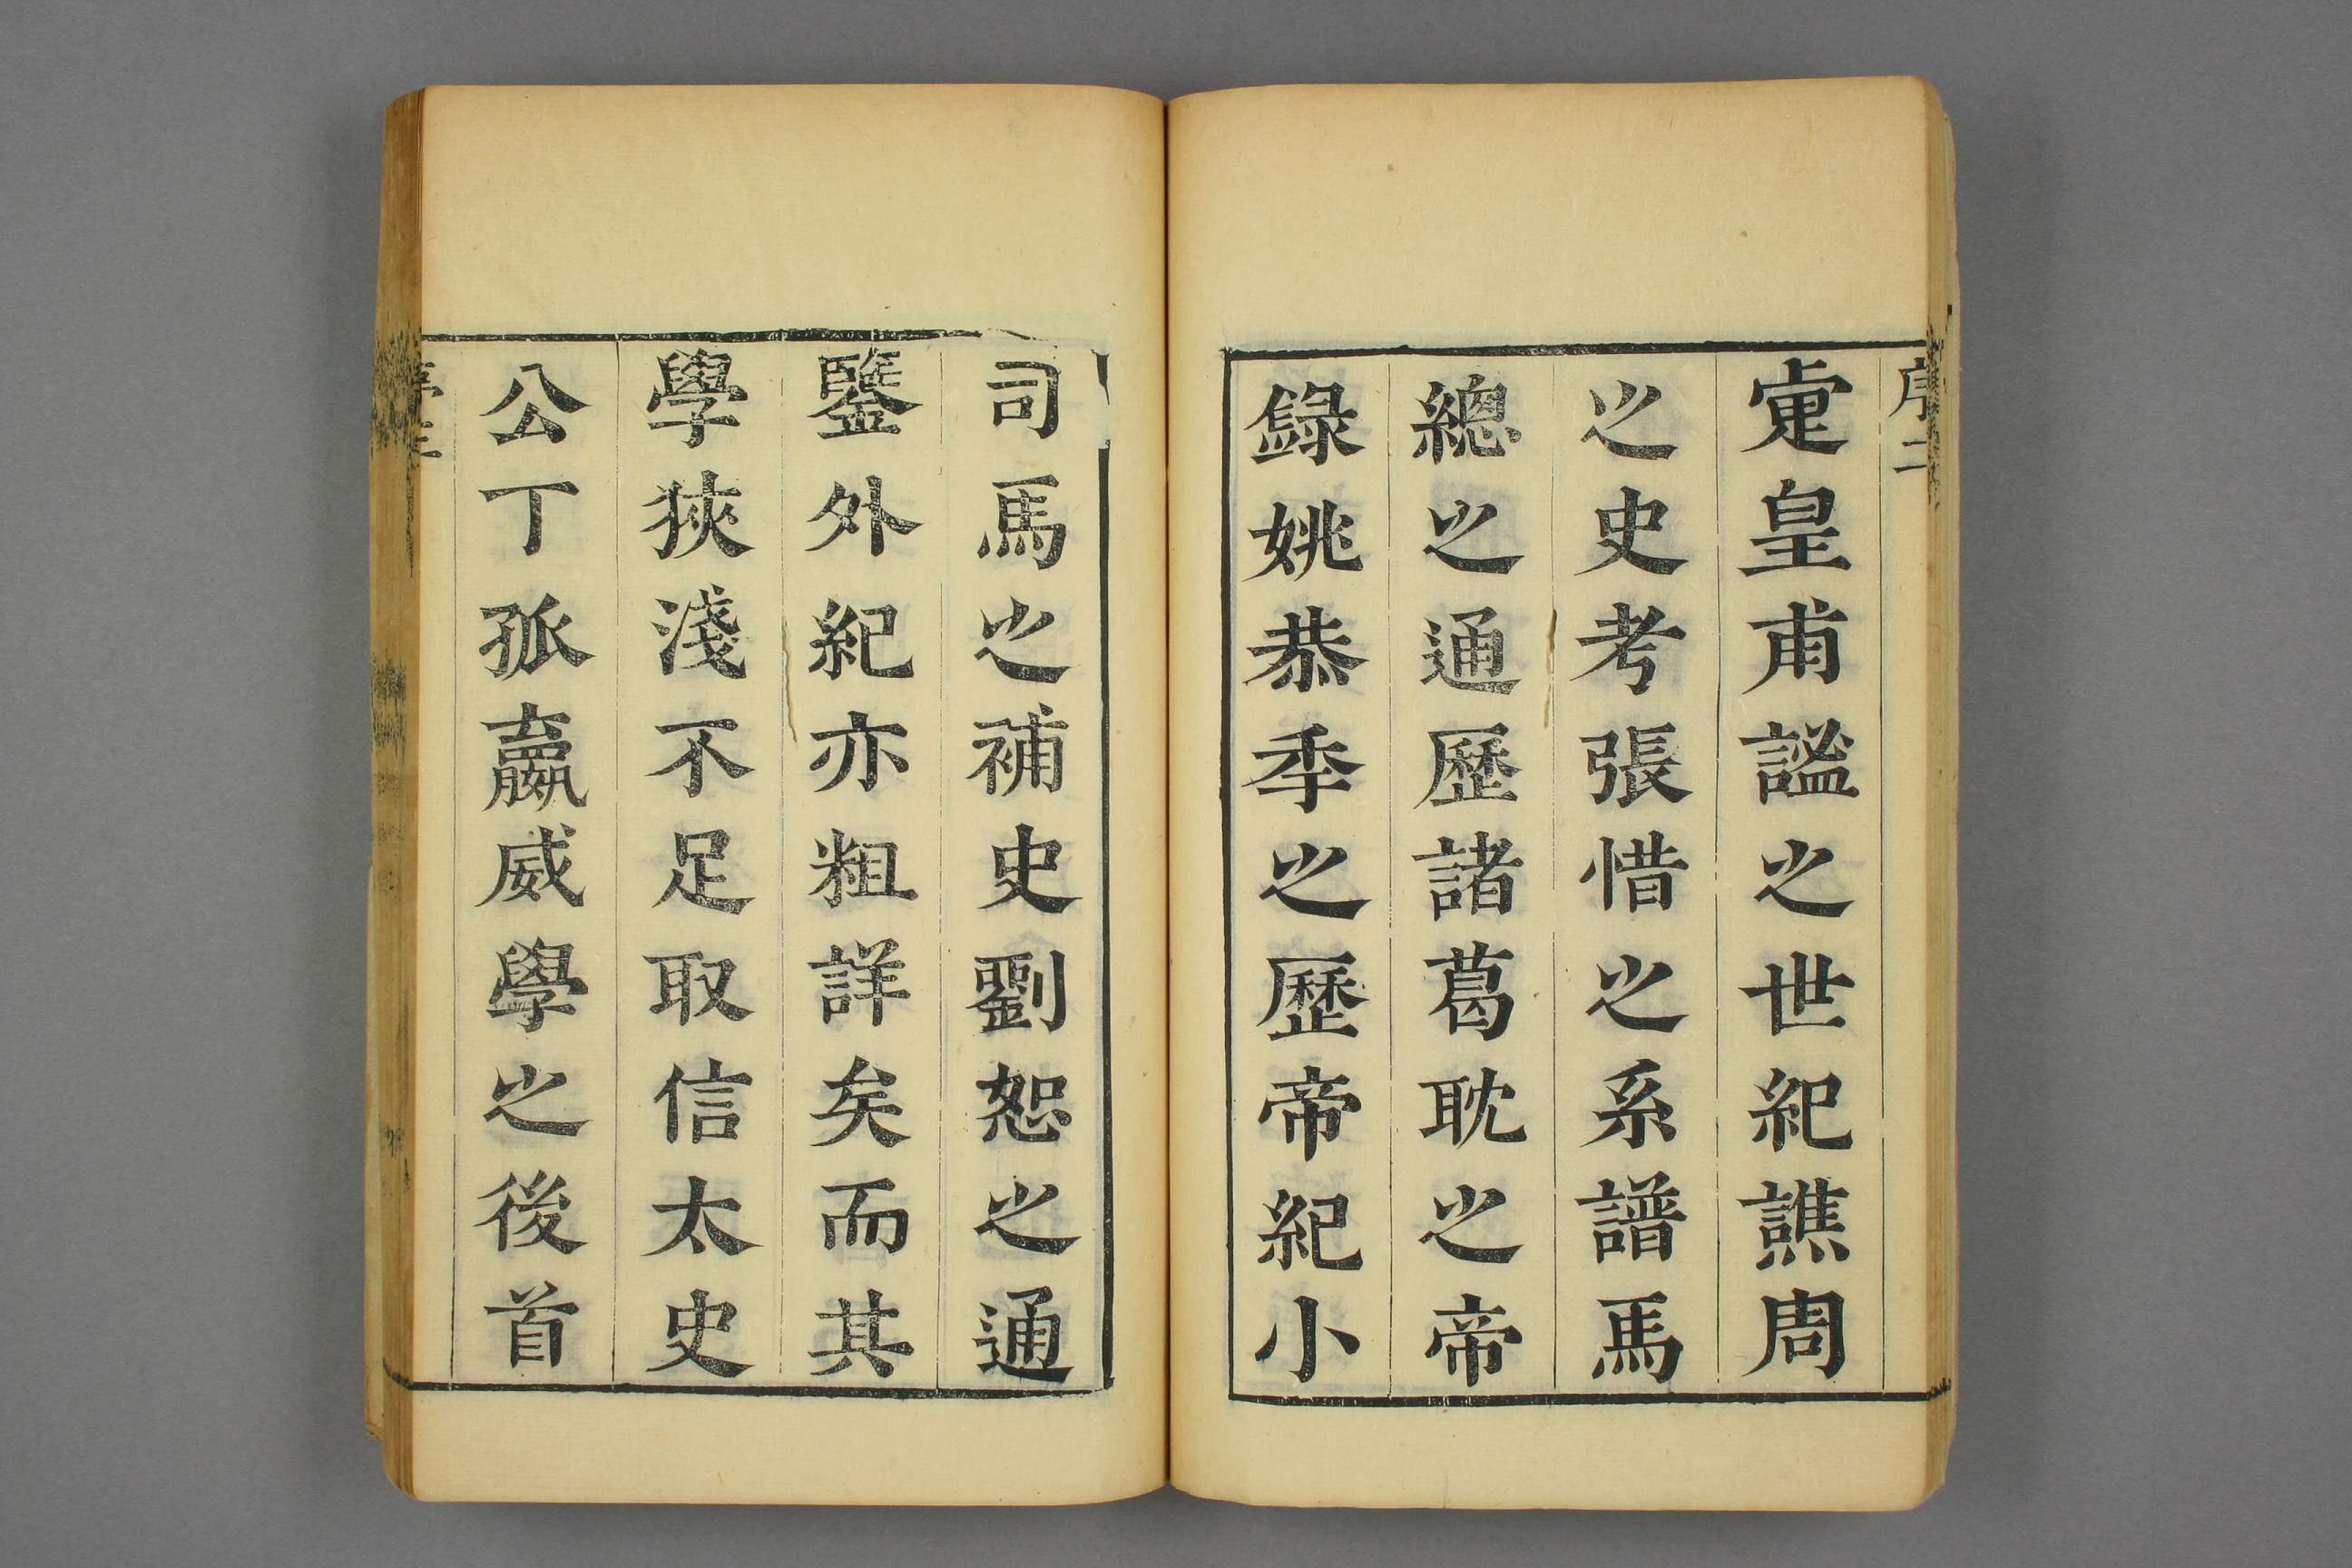 序二
寔皇甫謐之世紀譙周
之史考張愔之系譜馬
總之通歷諸葛耽之帝
錄姚恭季之歷帝紀小
司馬之補史劉恕之通
鑒外紀亦粗詳矣而其
學狹淺不足取信太史
公丁孤嬴威學之後首